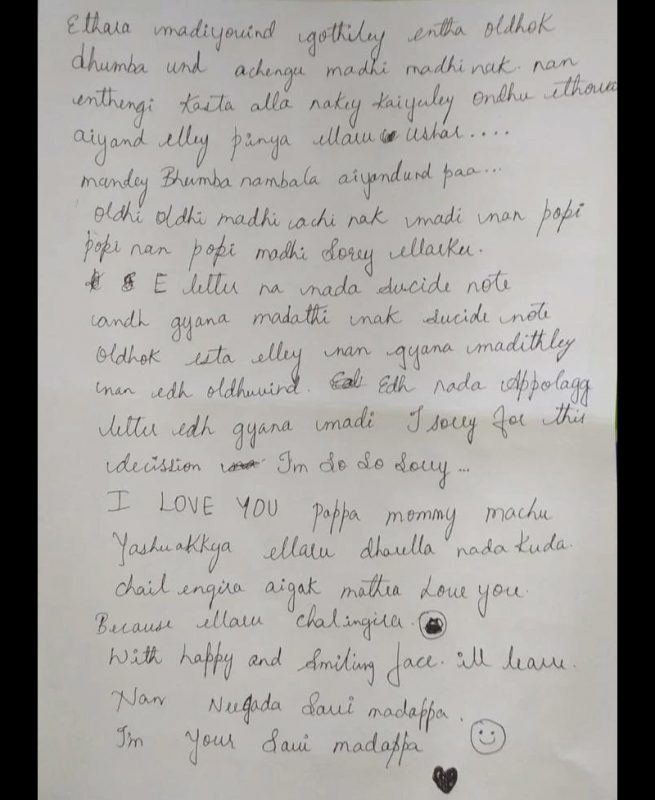 Ethara madiyouind igothiley entha oldhok
dhumba und achengu madhi madhi nak. nan
enthengi Kasta alla nakey Kaiyuley Ondhu
aiyand elley punya ellaru ushar....
mandey Bhumba nambala aiyandurd paa...
Oldhi Oldhi madhi cachi nak madi nan popi
popi nan popi madhi Sorey ellarku.
E letter na nada sucide note
andh gyana madathi nak sucide note
Oldhok esta elley nan gyana madithley
nan edh oldhuuind. Edh nada Appolagg
letter edh gyana madi I sorry for this
decission I'm So So Sorry...
I LOVE YOU pappa mommy machu
Yashuakkya ellaru dharella nada Kuda.
chail engira aigak mathra Love you.
Because ellaru chalingira.
With happy and Smiling face. ill leave.
Nan Neegada Savi madappa.
I'm Your Savi madappa